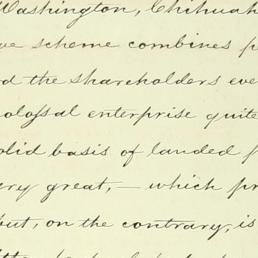 Washington, Chihuah
ve scheme combines p
d the shareholders eve
olossal enterprise quite
olid basis of landed p
ery great, — which pr
but, on the contrary, is